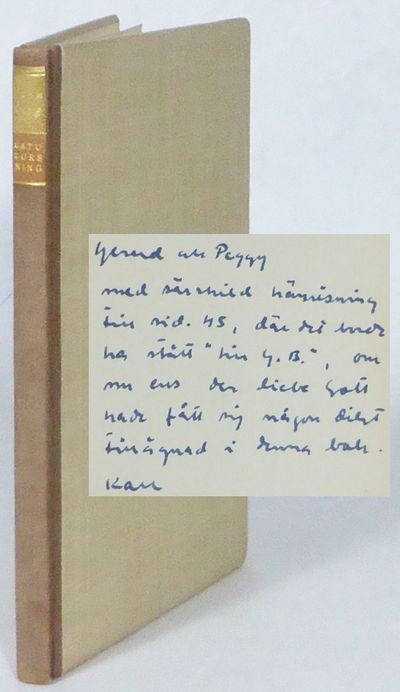 ATU
TORS
NING
Gerard och Peggy
med särskild hänvisning
till sid. 45, där det borde
ha stått "till G. B.", om
nu ens der liebe Gott
hade fått sig någon dikt
tillägnad i denna bok.
Karl